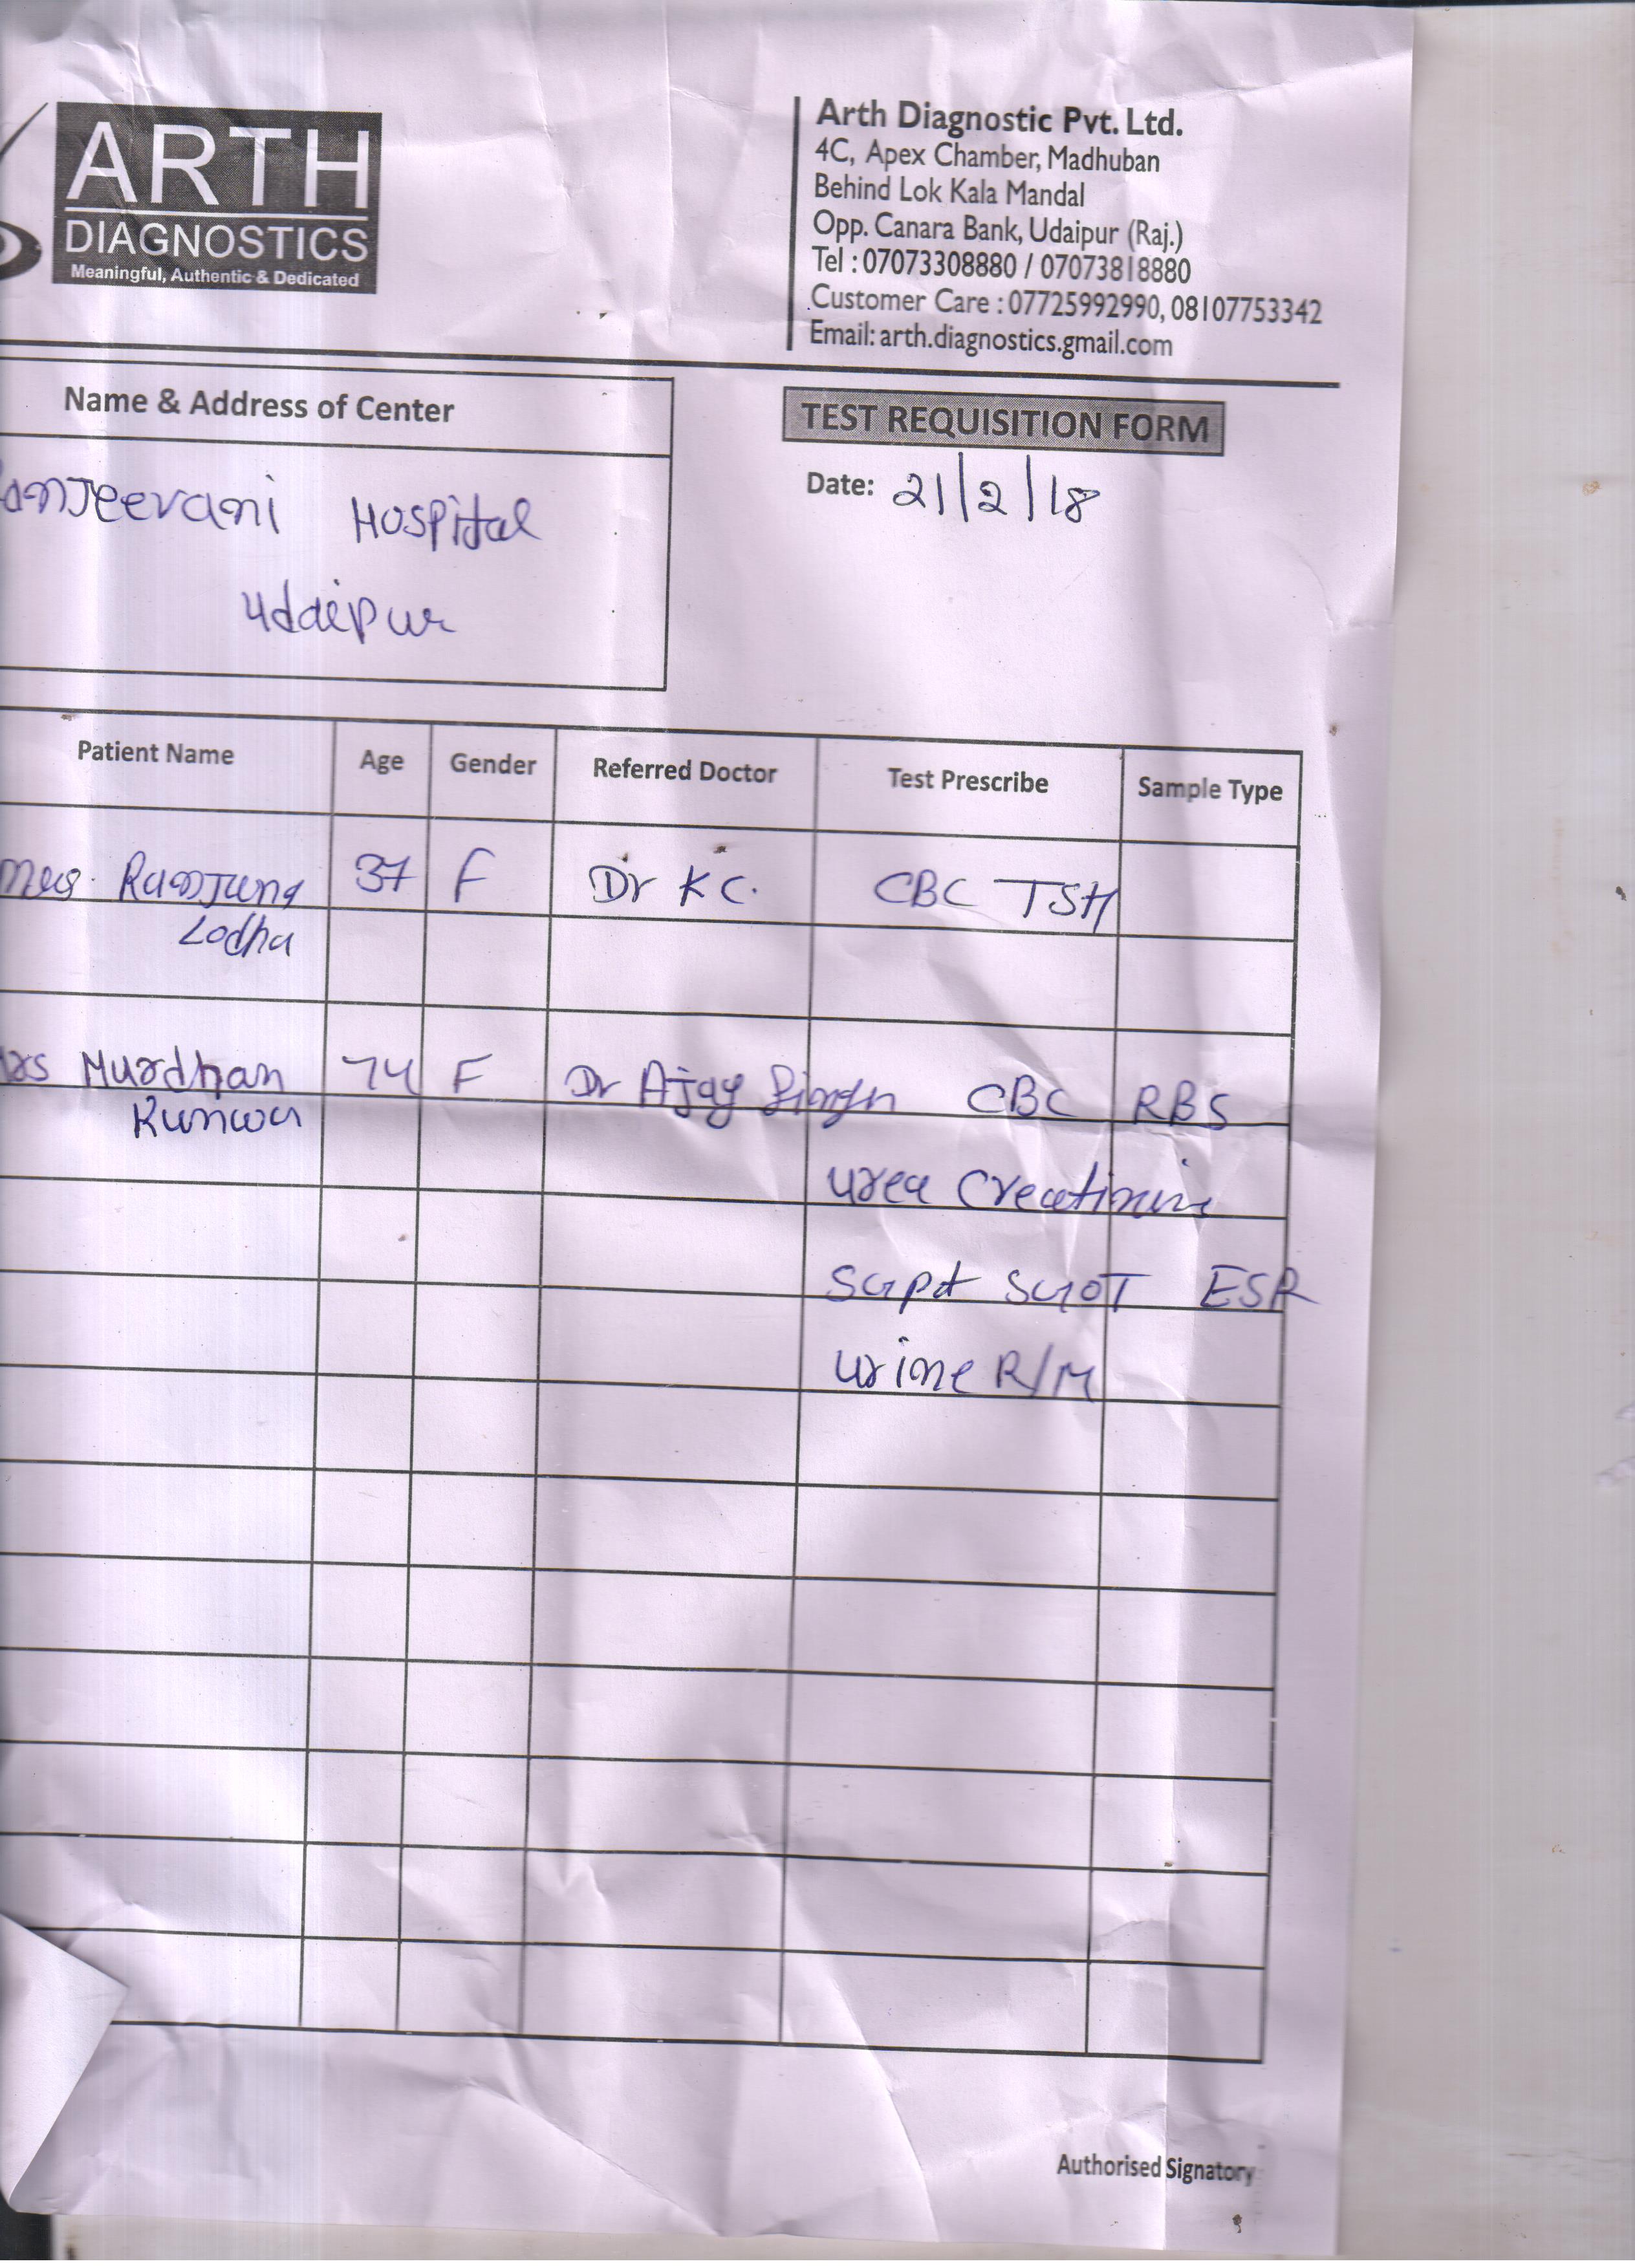 ARTH
DIAGNOSTICS
Meaningful, Authentic & Dedicated
Arth Diagnostic Pvt. Ltd.
4C, Apex Chamber, Madhuban
Behind Lok Kala Mandal
Opp. Canara Bank, Udaipur (Raj.)
Tel : 07073308880 / 07073818880
Customer Care : 07725992990, 08107753342
Email: arth.diagnostics.gmail.com
Name & Address of Center
TEST REQUISITION FORM
Date: 21/2/18
anjeevani Hospital
Uddipur
Patient Name Age Gender Referred Doctor Test Prescribe Sample Type
37 F Dr KC. CBC TSH
Lodha
Murdhan 74 F Dr Ajay Singh CBC RBS
Kunwar
Urea Creatinine
SGPT SGOT ESR
Urine R/M
Authorised Signatory